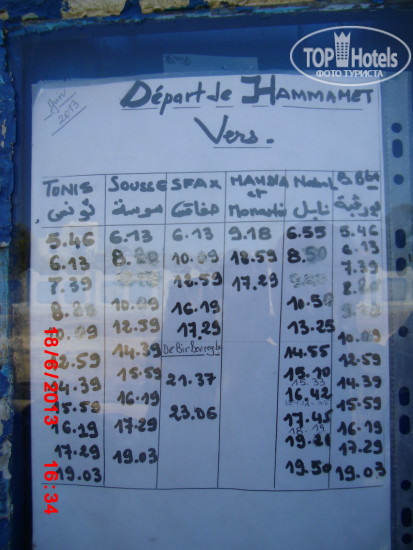 TOPHotels
ФОТО ТУРИСТА
Juin 2013
Départ de HAMMAMET
Vers.
TUNIS SOUSSE SFAX MAHDIA et Monastir Nabeul B.Bta
تونس سوسة صفاقس نابل
5.46 6.13 6.13 9.18 6.55 5.46
6.13 8.20 10.09 12.59 8.50 6.13
7.39 12.59 17.29 7.39
8.20 10.09 16.19 10.50 8.20
10.09 12.59 17.29 13.25 10.09
12.59 14.39 De Bir Bouregba 14.55 12.59
14.39 15.59 21.37 15.10 14.39
15.33
15.59 16.19 23.06 16.42 15.59
16.19 17.29 17.45 16.19
18.19
17.29 19.03 19.20 17.29
19.03 19.50 19.03
18/6/2013 16:34